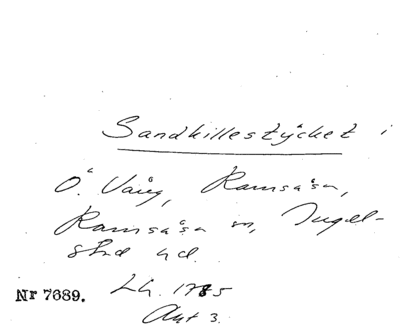 Sandkillestycket i
Ö. Vång, Ramsåsa,
Ramsåsa sn, Ingel-
stad hd.
Nr 7689. Lh. 1785
Akt 3.